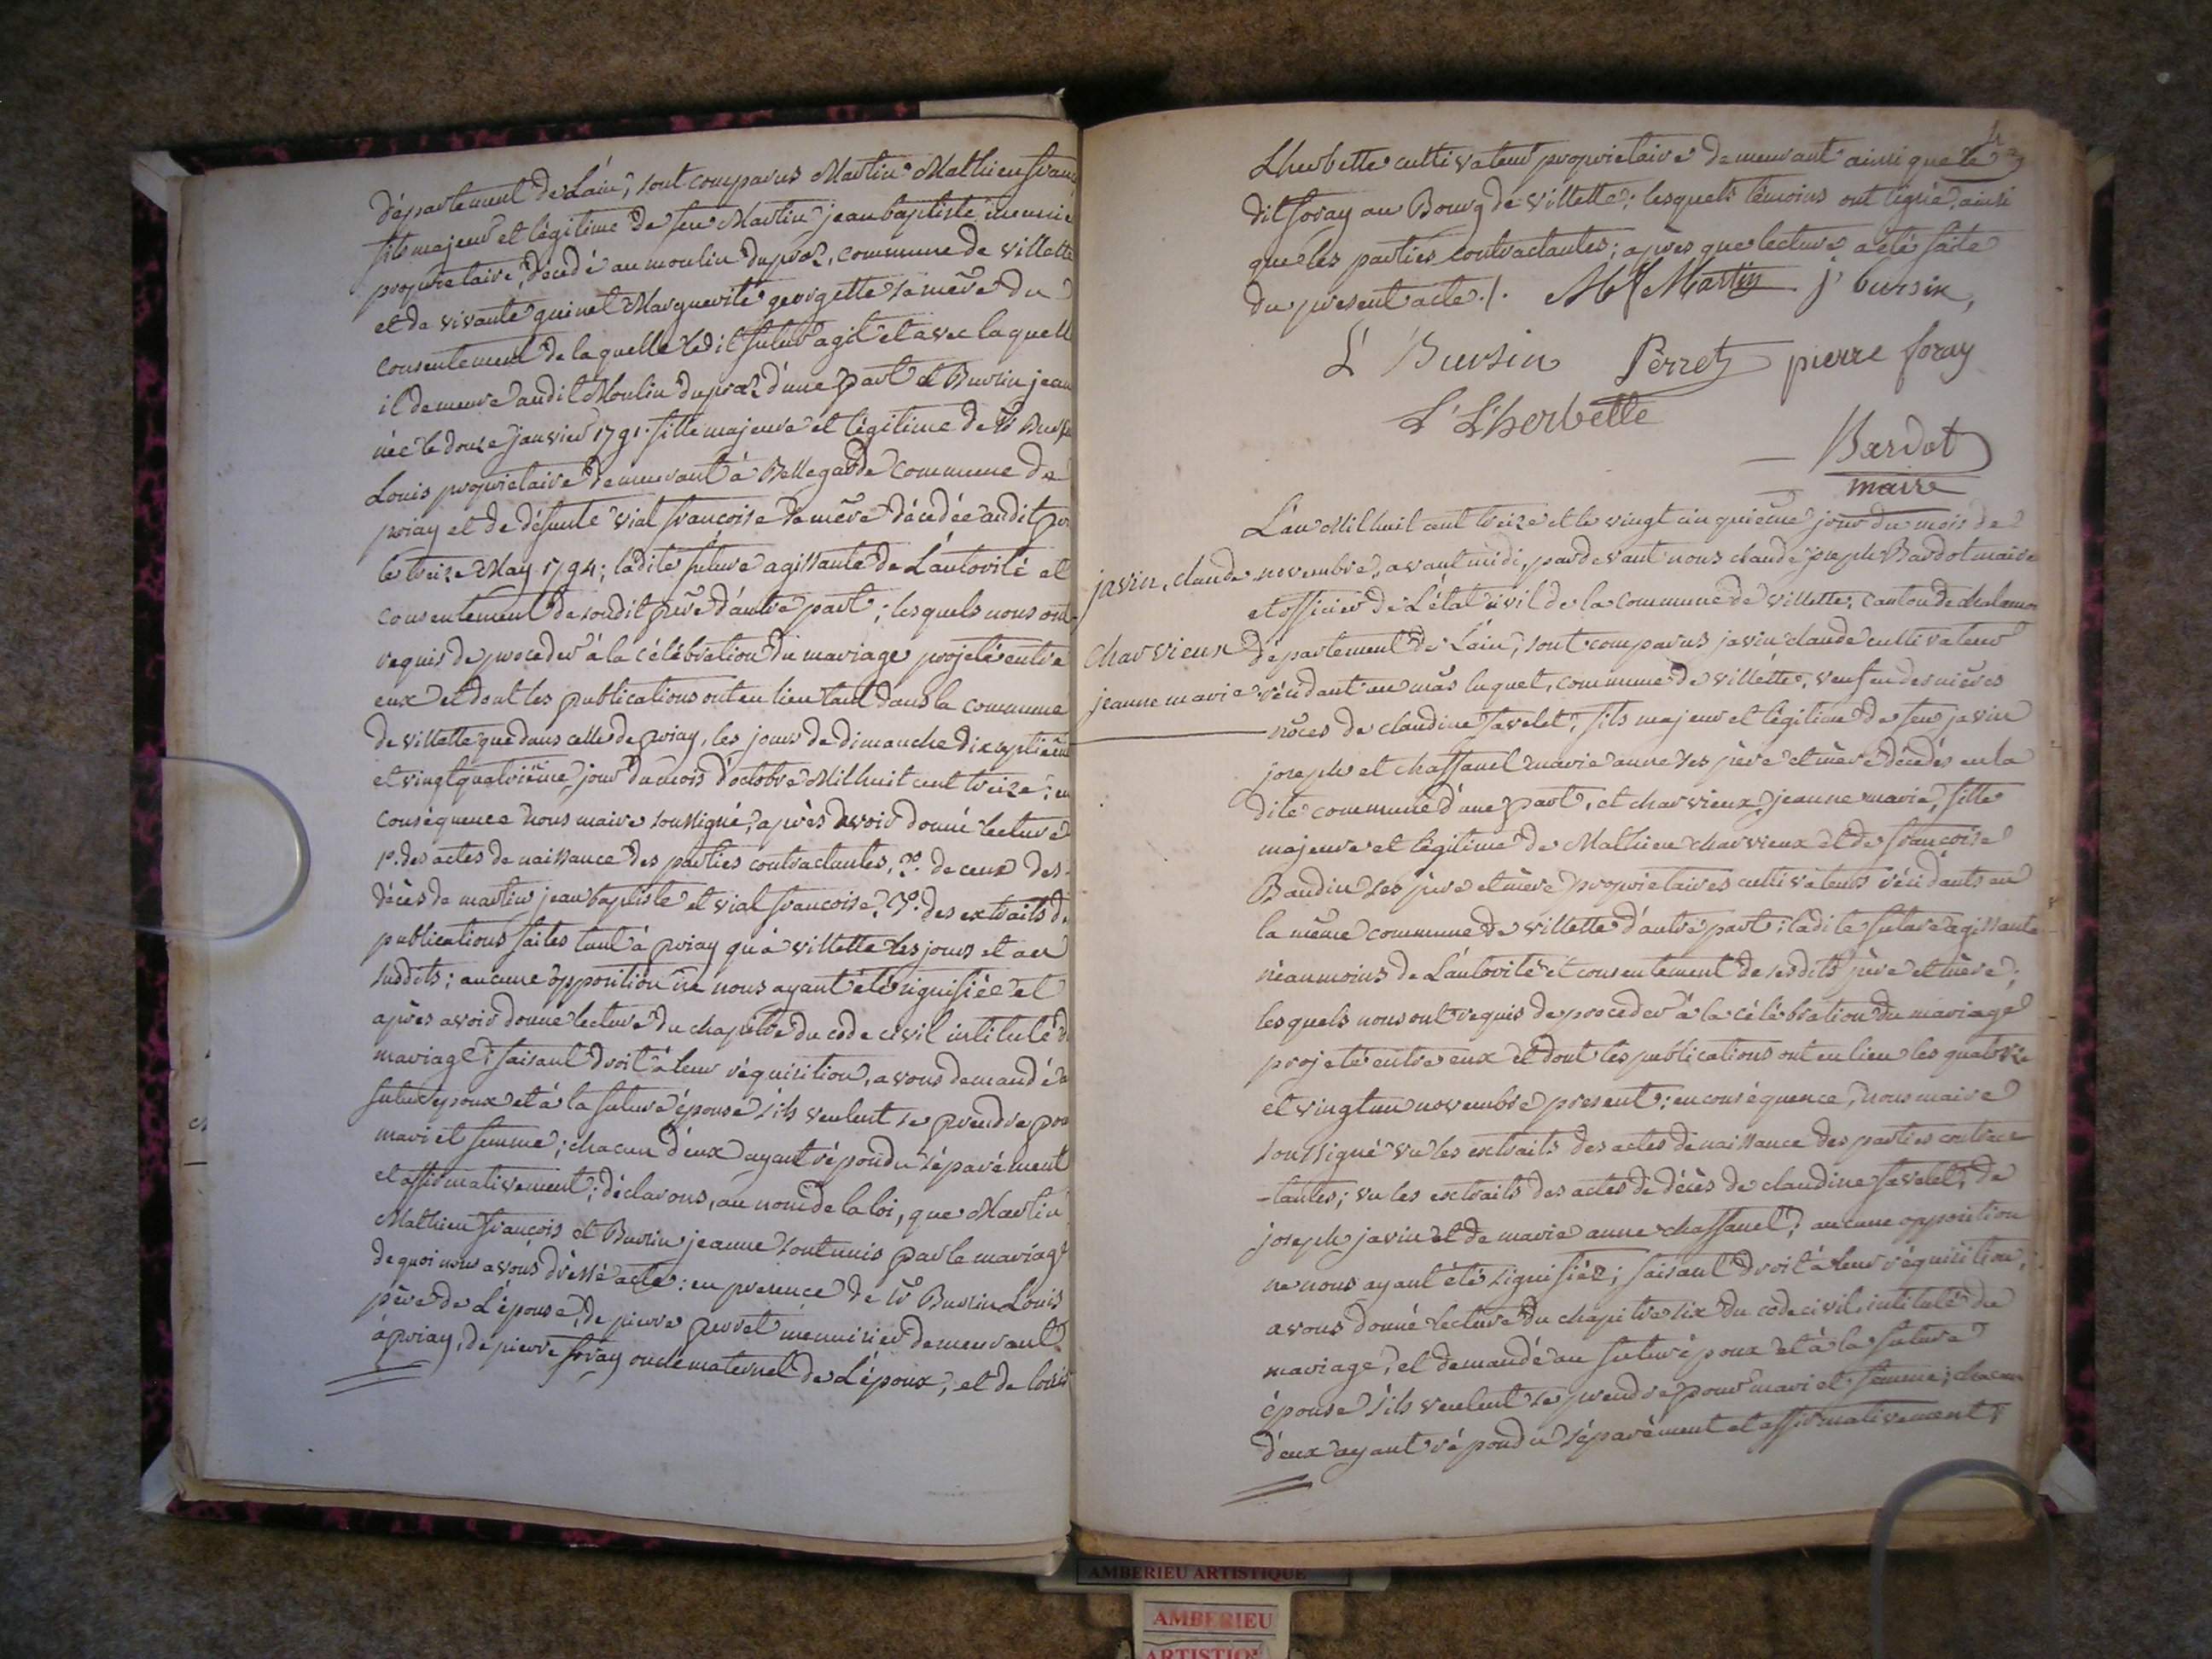 département de Lain, sont comparus Martin Mathieu
fils majeur et légitime de feu Martin jean baptiste
propriétaire, décédé au moulin dupraz, commune de villette
et de vivante guinet Marguerite georgette sa mère du
consentement de laquelle ledit futur agit et avec laquell
il demeure audit Moulin dupraz d'une part et Bursin jean
née le douze janvier 1791. fille majeure et légitime de
Louis propriétaire demeurant à Bellegarde commune de
priay et de défunte vial françoise sa mère décédée audit
le treize May 1794; ladite future agissante de L'autorité et
consentement de sondit père d'autre part; lesquels nous ont
requis de proceder à la célébration du mariage projeté entre
eux et dont les publications ont eu lieu tant dans la commune
de villette que dans celle de priay, les jours de dimanche dix septième
et vingt quatrième jour du mois d'octobre Mil huit cent treize; en
conséquence nous maire soussigné, après avoir donné lecture
1º. des actes de naissance des parties contractantes, 2º. de ceux des
décès de martin jean baptiste et vial francoise, 3º. des extraits d
publications faites tant à priay qu'à villette les jours et an
susdits; aucune opposition ne nous ayant été signifiée et
après avoir donné lecture du chapitre du code civil intitulé d
mariage; faisant droit à leur réquisition, avons demandé
futur epoux et à la future épouse s'ils veulent se prendre pou
mari et femme; chacun d'eux ayant répondu séparément
et affirmativement; déclarons, au nom de la loi, que Martin
Mathieu françois et Bursin jeanne sont unis par le mariage
de quoi nous avons dressé acte: en presence de Bursin Louis
père de L'épouse, de pierre perret menuisier demeurant
à priay, de pierre foray oncle maternel de L'époux, et de louis
4
Lherbette cultivateur propriétaire demeurant ainsi que le
dit foray au Bourg de villette; lesquels témoins ont signé, ainsi
que les parties contractantes; après que lecture a été faite
du present acte ./. Martin j bursin,
L Bursin Perret pierre foray
L Lherbette
Bardot
maire
L'an Mil huit cent treize et le vingt cinquième jour du mois de
javin, claude novembre, avant midi, pardevant nous claude joseph Bardot maire
et officier de L'état civil de la commune de villette, canton de chalamon
charvieux département de Lain, sont comparus javin claude cultivateur
jeanne marie résidant au mas luquet, commune de villette, veuf en dernières
nôces de claudine favelet, fils majeur et légitime de feu javin
joseph et chassanel marie anne ses père et mère décédés en la
dite commune d'une part, et charvieux, jeanne marie, fille
majeure et légitime de Mathieu charvieux et de françoise
Baudin ses père et mère propriétaires cultivateurs résidants en
la même commune de villette d'autre part; ladite future agissante
néanmoins de L'autorité et consentement de sesdits père et mère;
lesquels nous ont requis de proceder à la célébration du mariage
projeté entre eux et dont les publications ont eu lieu les quatorze
et vingt un novembre present: en conséquence, nous maire
soussigné vu les extraits des actes de naissance des parties contrac-
-tantes; vu les extraits des actes de décès de claudine favelet, de
joseph javin et de marie anne chassanel; aucune opposition
ne nous ayant été signifiée; faisant droit à leur réquisition;
avons donné lecture du chapitre six du code civil, intitulé du
mariage, et demandé au futur époux et à la future
épouse s'ils veulent se prendre pour mari et femme; chacun
d'eux ayant répondu séparément et affirmativement;
AMBERIEU ARTISTIQUE
AMBERIEU
ARTISTIQUE